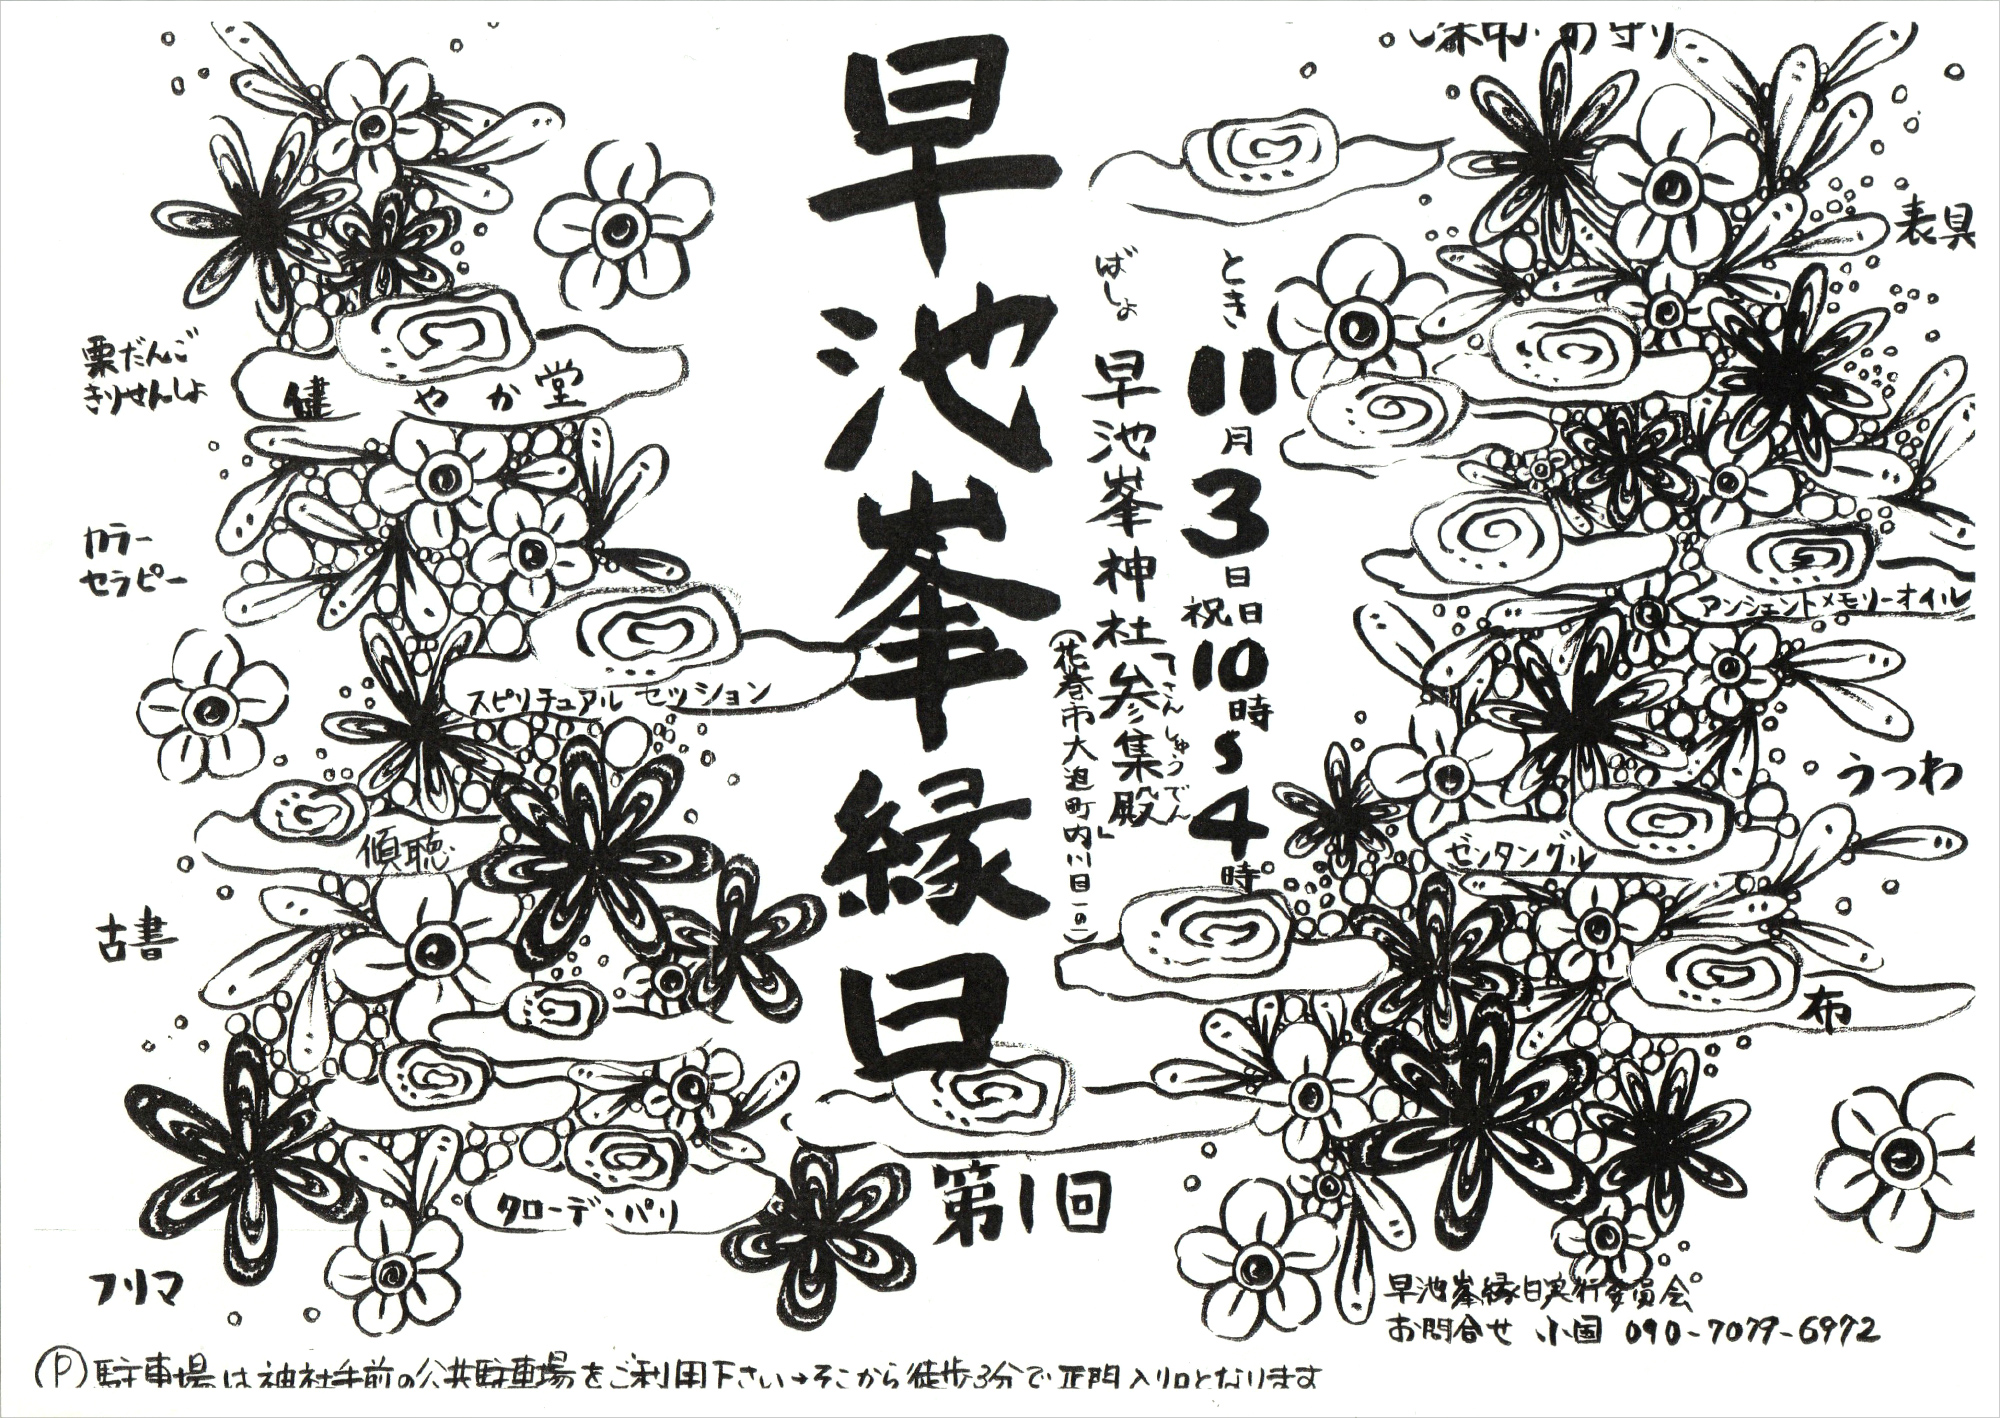 早池峯縁日
第1回
とき
11月3日日祝日10時〜4時
ばしょ
早池峯神社「参集殿」
さんしゅうでん
(花巻市大迫町内川目1の1)
お守り
表具
アンシェントメモリーオイル
うつわ
ゼンタングル
布
栗だんご
きりせんしょ
健やか堂
カラー
セラピー
スピリチュアルセッション
傾聴
古書
タローデ・パリ
フリマ
早池峯縁日実行委員会
お問合せ 小国 090-7079-6972
Ⓟ駐車場は神社手前の公共駐車場をご利用下さい→そこから徒歩3分で正門入り口となります